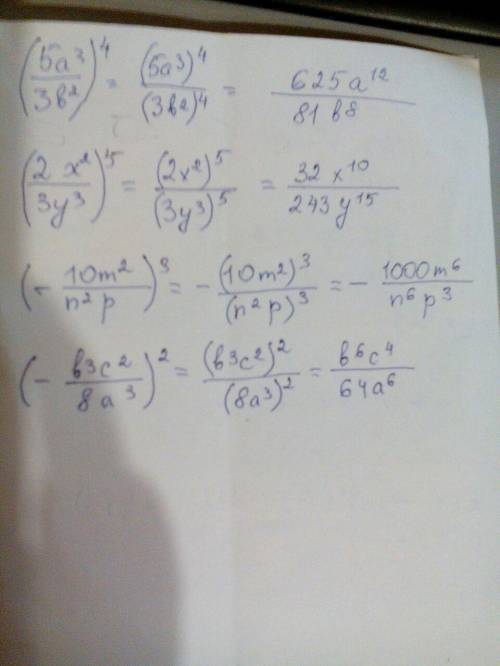 (5a³/3в²)⁴ = (5a³)⁴/(3в²)⁴ = 625a¹²/81в⁸
(2x²/3y³)⁵ = (2x²)⁵/(3y³)⁵ = 32x¹⁰/243y¹⁵
(-10m²/n²p)³ = -(10m²)³/(n²p)³ = -1000m⁶/n⁶p³
(-в³c²/8a³)² = (в³c²)²/(8a³)² = в⁶c⁴/64a⁶